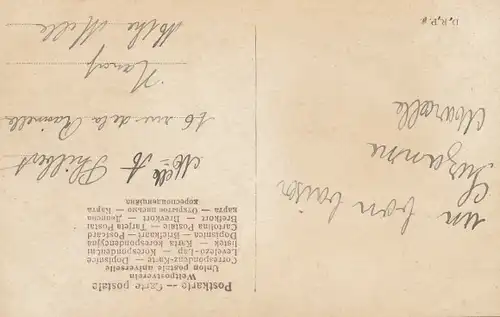 Postkarte — Carte postale
Weltpostverein
Union postale universelle
Correspondenz-Karte — Dopisnice
Levelező-Lap — Korespondentni
listek — Karta korespondencyjna
Dopisnica — Briefkaart — Postcard
Cartolina Postale — Tarjeta Postal
Brefkort — Brevkort — Дописна
карта — Открытое письмо — Карта
кореспонденційна
Melle A Philbert
16 rue de la
Nancy
un bon baiser
Suzanne
Marcelle
D. R. P.